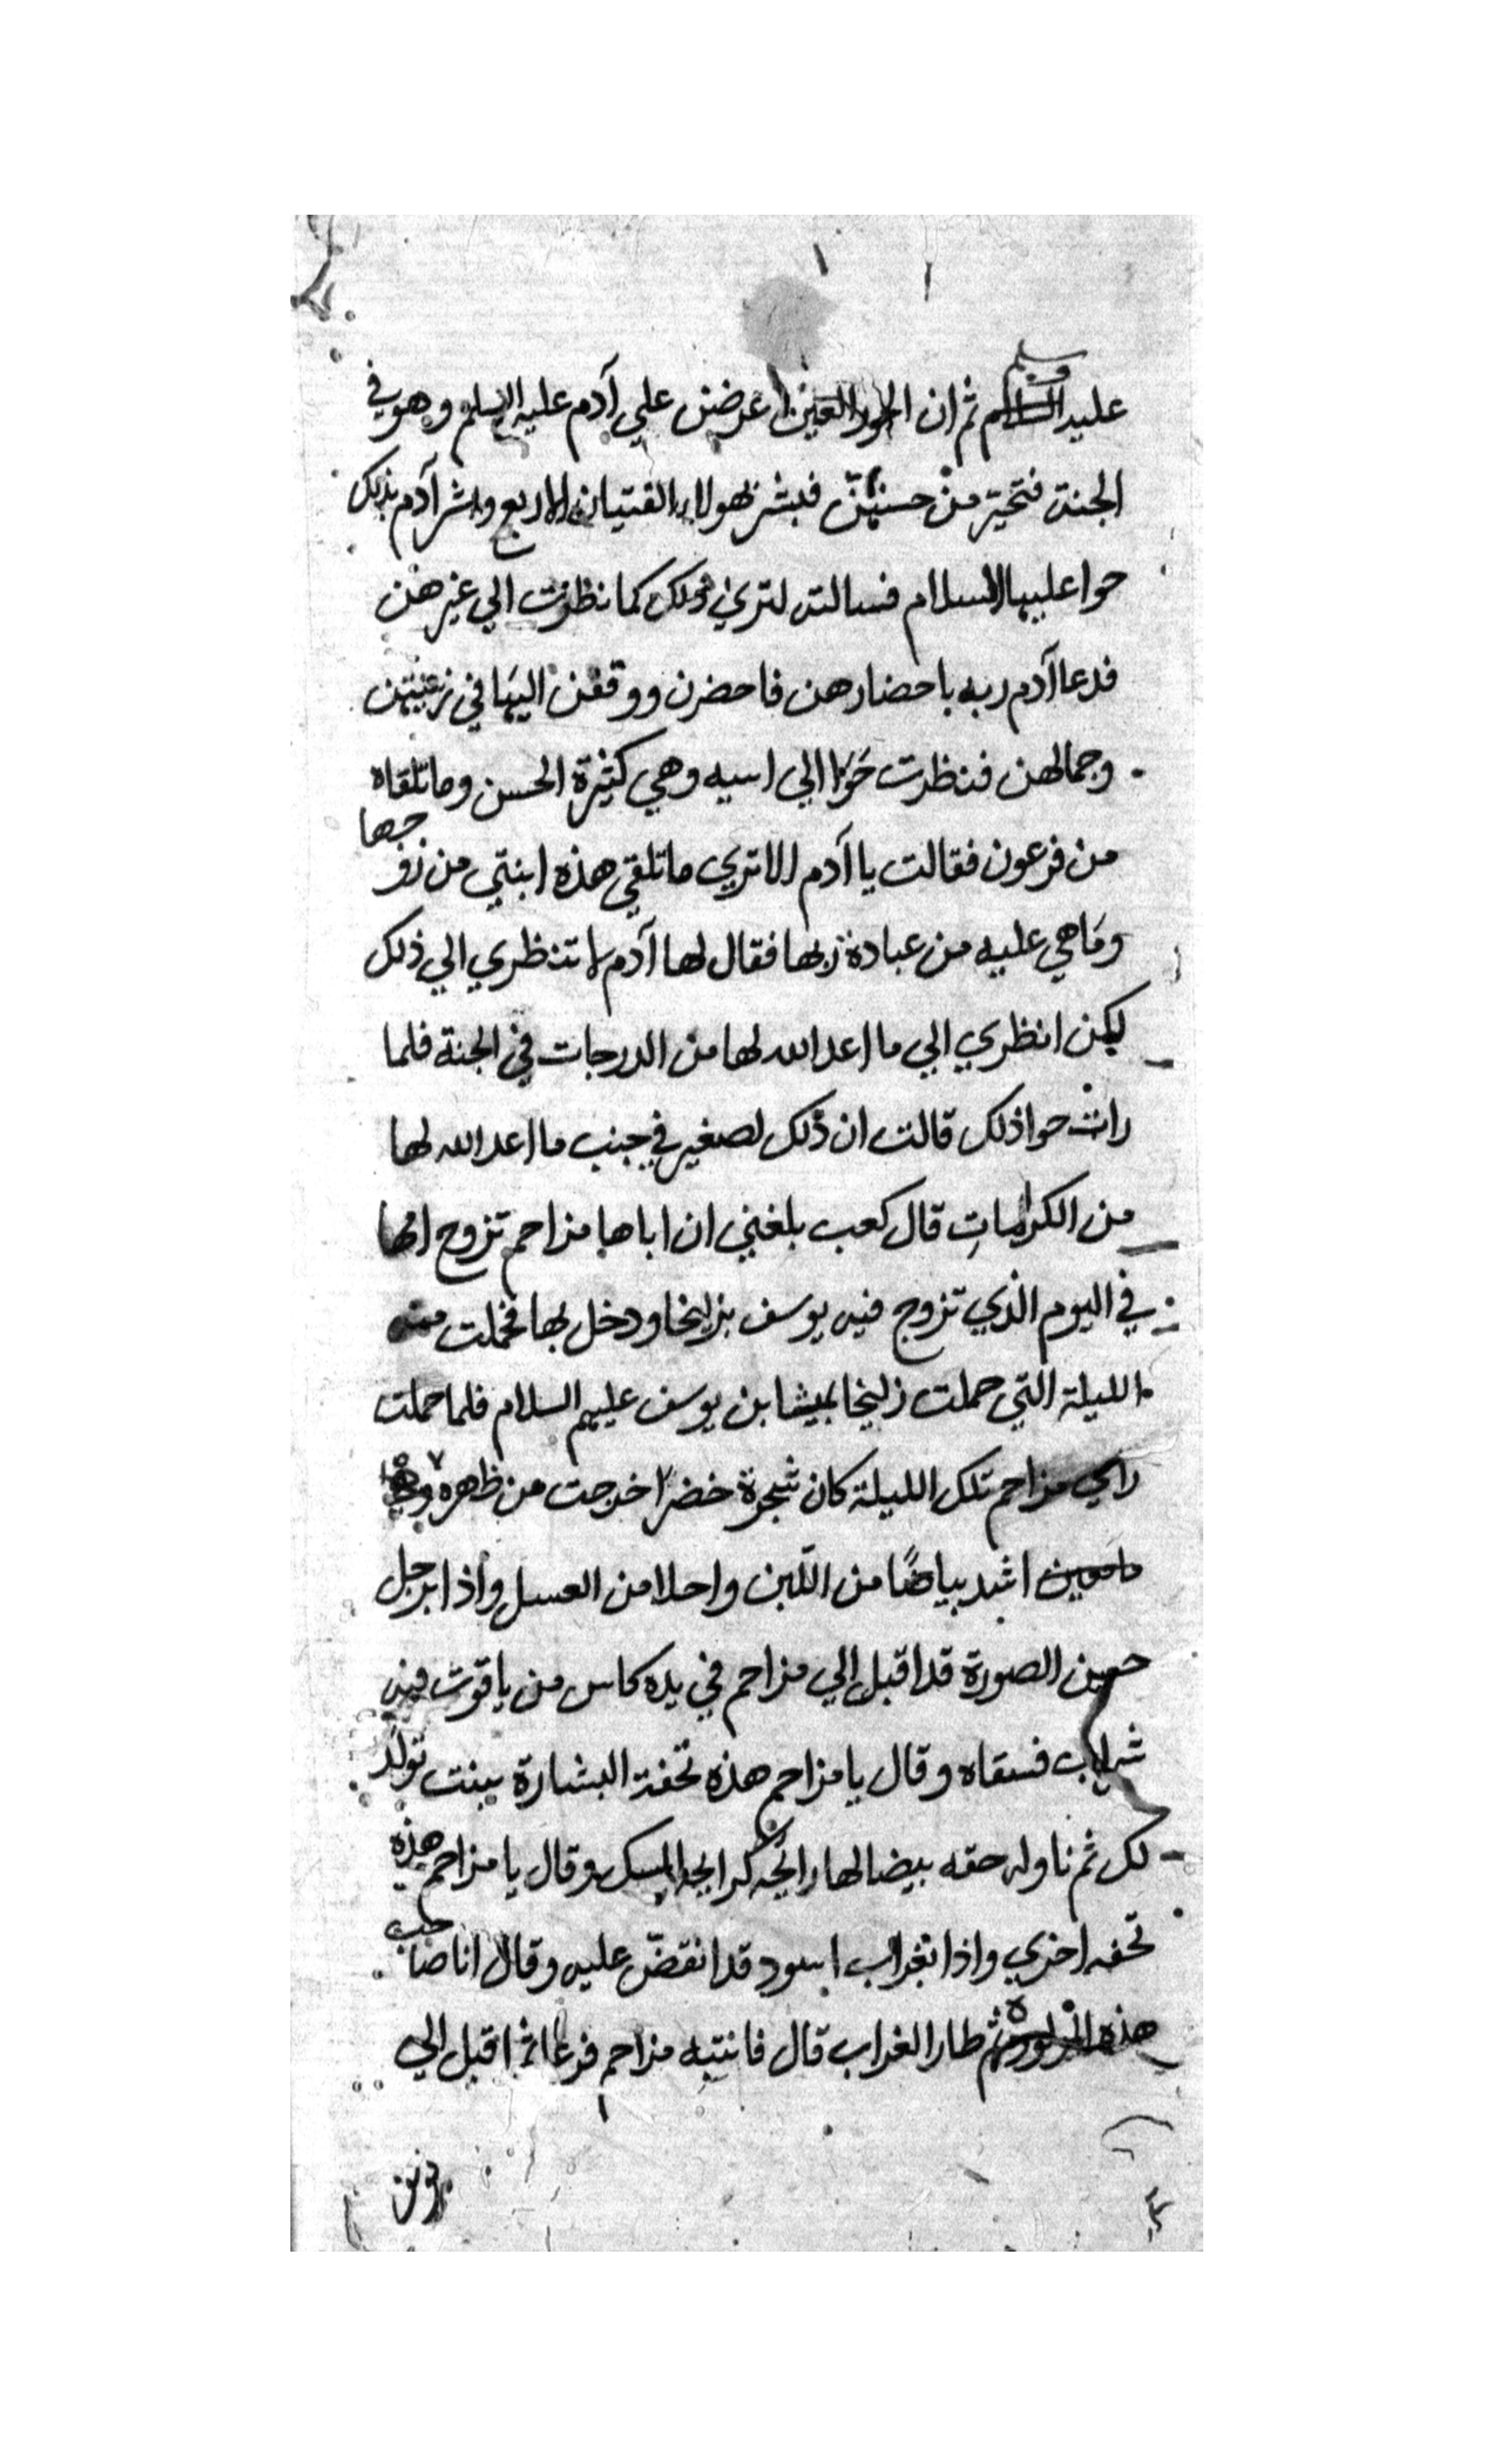 عليه وسلم ثم ان الحور العين اعرضن علي آدم عليه السلم وهو في
الجنة فتحير من حسنهن فبشر بهولاء الفتيان الاربع وبشر آدم بذلك
حوا عليها السلام فسالته لتري ذلك كما نظرت الي غيرهن
فدعا آدم ربه باحضارهن فاحضرن ووقفن اليها في زينتهن
وجمالهن فنظرت حوا الي اسيه وهي كثيرة الحسن وما تلقاه
من فرعون فقالت يا آدم الا تري ما تلقي هذه ابنتي من زوجها
وما هي عليه من عبادة ربها فقال لها آدم لا تنظري الي ذلك
لكن انظري الي ما اعد الله لها من الدرجات في الجنة فلما
رات حوا ذلك قالت ان ذلك لصغير في جنب ما اعد الله لها
من الكرامات قال كعب بلغني ان اباها مزاحم تزوج امها
في اليوم الذي تزوج فيه يوسف بزليخا ودخل بها فحملت منه
الليلة التي حملت زليخا بميشا بن يوسف عليهم السلام فلما حملت
راي مزاحم تلك الليلة كان شجرة خضرا خرجت من ظهره
اشد بياضًا من اللبن واحلا من العسل واذا برجل
حسن الصورة قد اقبل الي مزاحم في يده كاس من ياقوت فيه
شراب فسقاه وقال يا مزاحم هذه تحفة البشارة ببنت تولد
لك ثم ناوله حقه بيضا لها رايحه كرايحه المسك وقال يا مزاحم هذه
تحفه اخري واذا بغراب اسود قد انقضّ عليه وقال انا صاحب
هذه ثم طار الغراب قال فانتبه مزاحم فزعا ثم اقبل الي